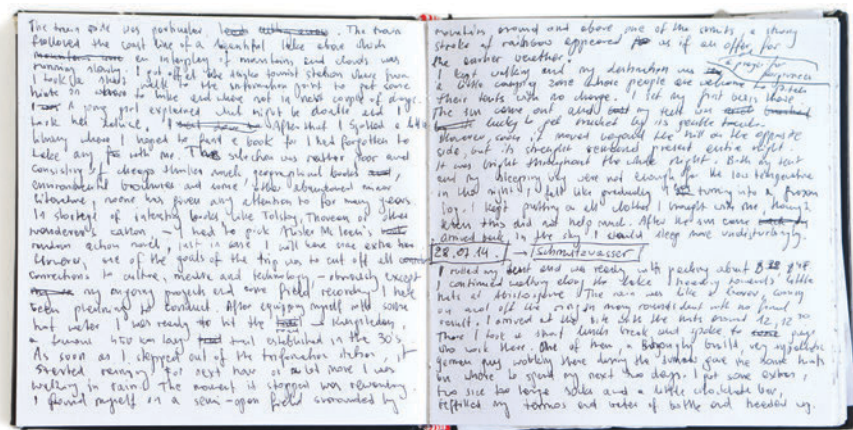 The train ride was particular, The train
followed the coast line of a beautiful lake above which
an interplay of mountains and clouds was
running slowly. I got off at the tourist station where from
I took a short walk to the information point to get some
hints on where to hike and where not in next couple of days.
A young girl explained what might be doable and I
took her advice. After that I spotted a little
library where I hoped to find a book for I had forgotten to
take any with me. The selection was rather poor and
consisting of cheap thriller novels, geographical books
environmental brochures and some other abandoned minor
literature, noone has given any attention to for many years.
In shortage of interesting books like Tolstoy, Thoreau or other
wonderous canon, I had to pick Alister McLean's
random action novel, just in case I will have some extra time.
However, one of the goals of the trip was to cut off all
connections to culture, media and technology, obviously except
my ongoing projects and some field recording I have
been planning to conduct. After equiping myself with some
hot water I was ready to hit the Kungsleden,
a famous 450 km long trail established in the 30's.
As soon as I stepped out of the information station, it
started raining. For next hour or a bit more I was
walking in rain. The moment it stopped was rewarding.
I found myself on a semi-open field surrounded by
mountains around and above one of the a strong
stroke of rainbow appeared as if an offer for
the earlier weather.
a prayer for
forgiveness
I kept walking and my destination was
a little camping zone where people are welcome to pitch
their tents with no charge. I set my first basis there.
The sun came out and my tent was
lucky to get touched by its gentle touch.
However, soon it moved beyond the hill on the opposite
side, but its strenght remained present entire night.
It was bright throughout the whole night. Both my tent
and my sleeping bag were not enough for the low temperature
in the night, I felt like gradually turning into a frozen
log. I kept putting on all clothes I brought with me, though
even this did not help much. After the sun came
arrived back in the sky I could sleep more undisturbingly.
28.07.14. →
I rolled my tent and was ready with packing about
I continued walking along the lake heading towards little
huts at The rain was like a lover, coming
on and off the ring in many rounds but with no final
result. I arrived at the site with the huts around 12, 12:30
There I took a short lunch break and spoke to guys
who work there. One of them, a strongly build, very sympathetic
german guy working there during the summer gave me some hints
on where to spend my next two days. I put some extra,
two size too large socks and a little chocolate bar,
refilled my termos and water of bottle and headed up.